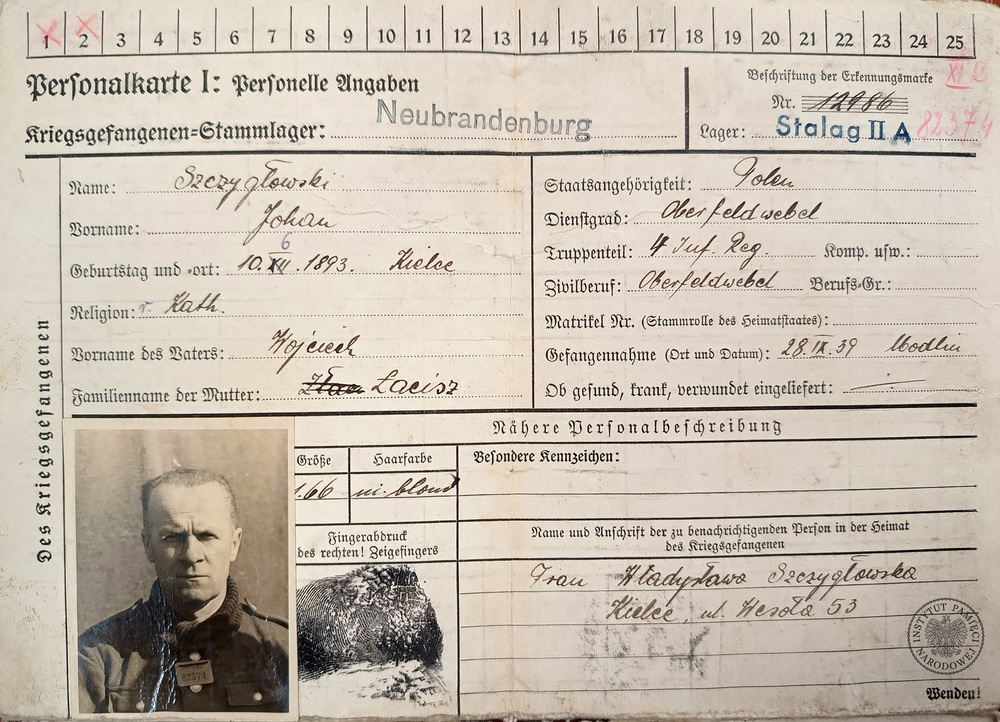 1 2 3 4 5 6 7 8 9 10 11 12 13 14 15 16 17 18 19 20 21 22 23 24 25
Personalkarte I: Personelle Angaben
Kriegsgefangenen-Stammlager: Neubrandenburg
Beschriftung der Erkennungsmarke
XI B
Nr. 12986
Lager: Stalag II A 82374
Des Kriegsgefangenen
Name: Szczygłowski
Vorname: Johan
6
Geburtstag und -ort: 10.XII.1893. Kielce
Religion: r. Kath.
Vorname des Vaters: Wojciech
Familienname der Mutter: Lacisz
Staatsangehörigkeit: Polen
Dienstgrad: Oberfeldwebel
Truppenteil: 4 Inf. Reg. Komp. usw.:
Zivilberuf: Oberfeldwebel Berufs-Gr.:
Matrikel Nr. (Stammrolle des Heimatstaates):
Gefangennahme (Ort und Datum): 28.IX.39 Modlin
Ob gesund, krank, verwundet eingeliefert:
Nähere Personalbeschreibung
Größe Haarfarbe Besondere Kennzeichen:
1.66 m. blond
Fingerabdruck
des rechten! Zeigefingers
Name und Anschrift der zu benachrichtigenden Person in der Heimat
des Kriegsgefangenen
Frau Władysława Szczygłowska
Kielce, ul. Wesoła 53
82374
INSTYTUT PAMIĘCI
NARODOWEJ
Wenden!